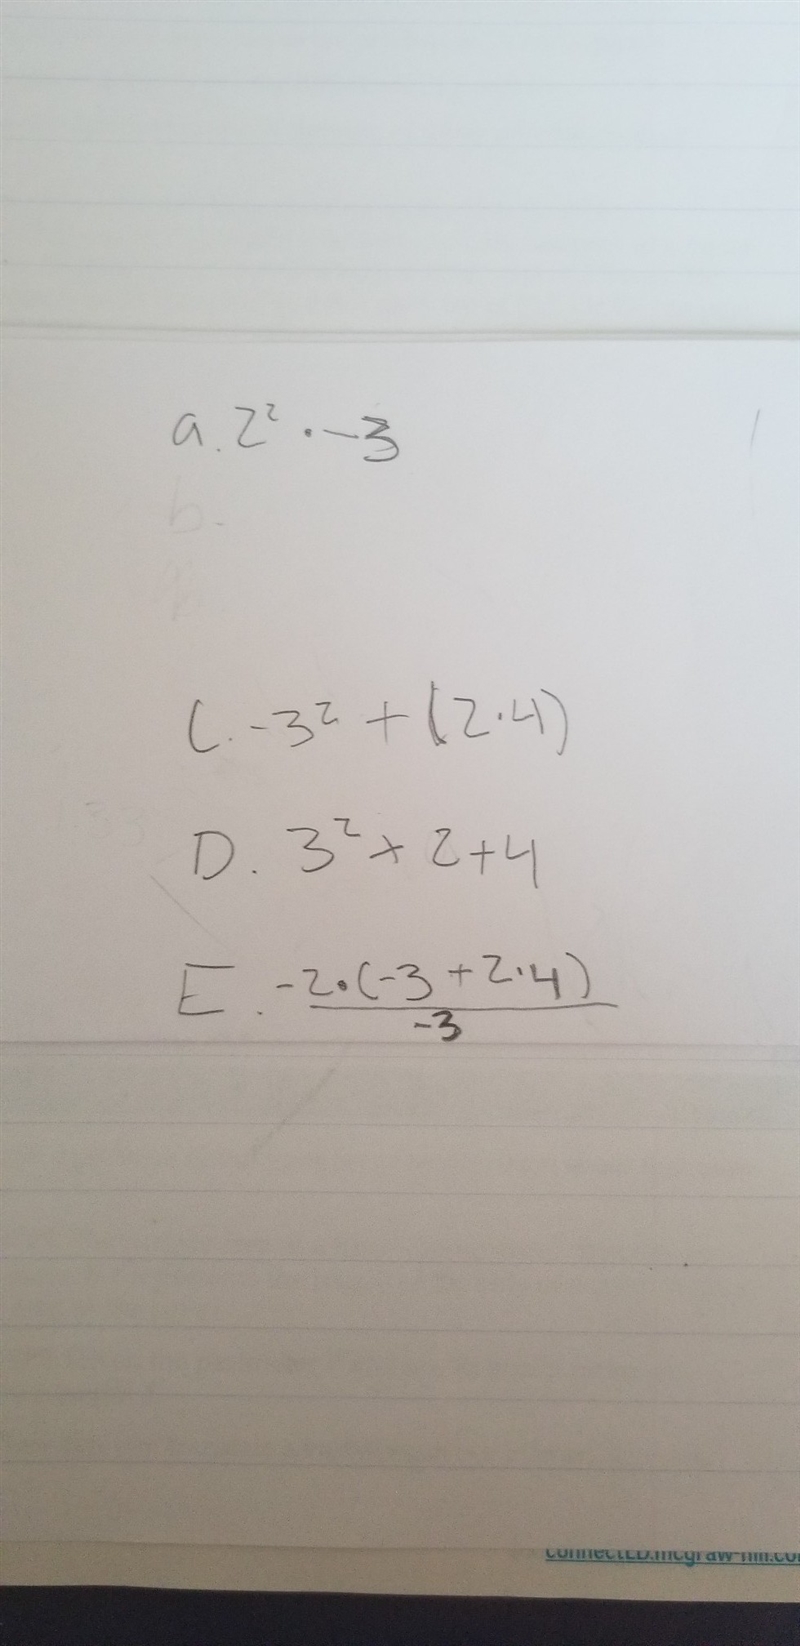 a. 2² · -3
b.
C. -3² + (2·4)
D. 3² + 2+4
E. -2·(-3 + 2·4)
-3
connectED.mcgraw-hill.co